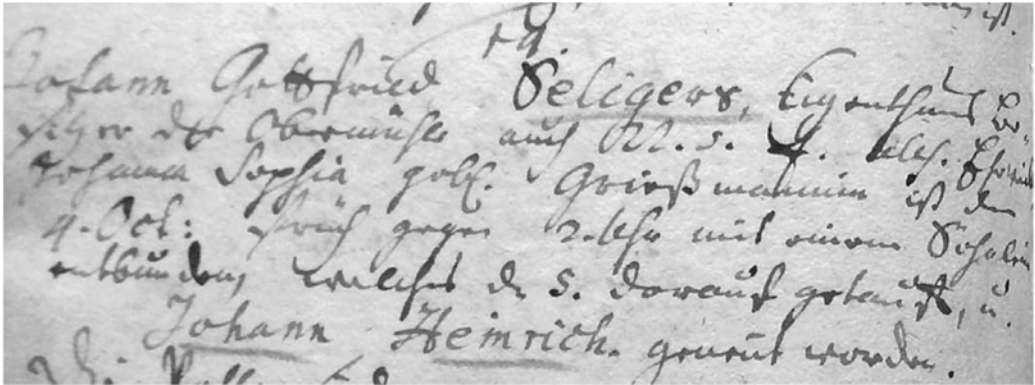 Johann Gottfried Seligers, Eigenthums Be
sitzer der Obermühle auch
Johanna Sophia geb. Grießmannin ist den
4. Oct: früh gegen 2. Uhr mit einem Söhnlein
entbunden, welches d. 5. darauf getauft, u.
Johann Heinrich. genent worden.